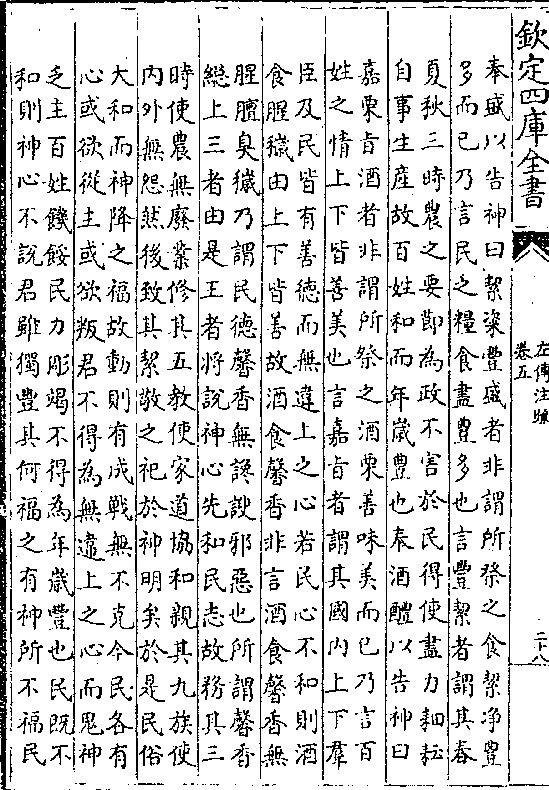 欽定四庫全書
左傳注疏
卷五
二十八
奉盛以告神曰絜粢豐盛者非謂所祭之食絜净豐
多而已乃言民之糧食盡豐多也言豐絜者謂其春
夏秋三時農之要節為政不害於民得使盡力耕耘
自事生産故百姓和而年歲豐也奉酒醴以告神曰
嘉栗旨酒者非謂所祭之酒栗善味美而已乃言百
姓之情上下皆善美也言嘉旨者謂其國内上下羣
臣及民皆有善德而無違上之心若民心不和則酒
食腥穢由上下皆善故酒食馨香非言酒食馨香無
腥膻臭穢乃謂民德馨香無讒諛邪惡也所謂馨香
緫上三者由是王者將說神心先和民志故務其三
時使農無廢業修其五教使家道協和親其九族使
内外無怨然後致其絜敬之祀於神明矣於是民俗
大和而神降之福故動則有成戰無不克今民各有
心或欲從主或欲叛君不得為無違上之心而鬼神
乏主百姓饑餒民力彫竭不得為年歲豐也民既不
和則神心不說君雖獨豐其何福之有神所不福民